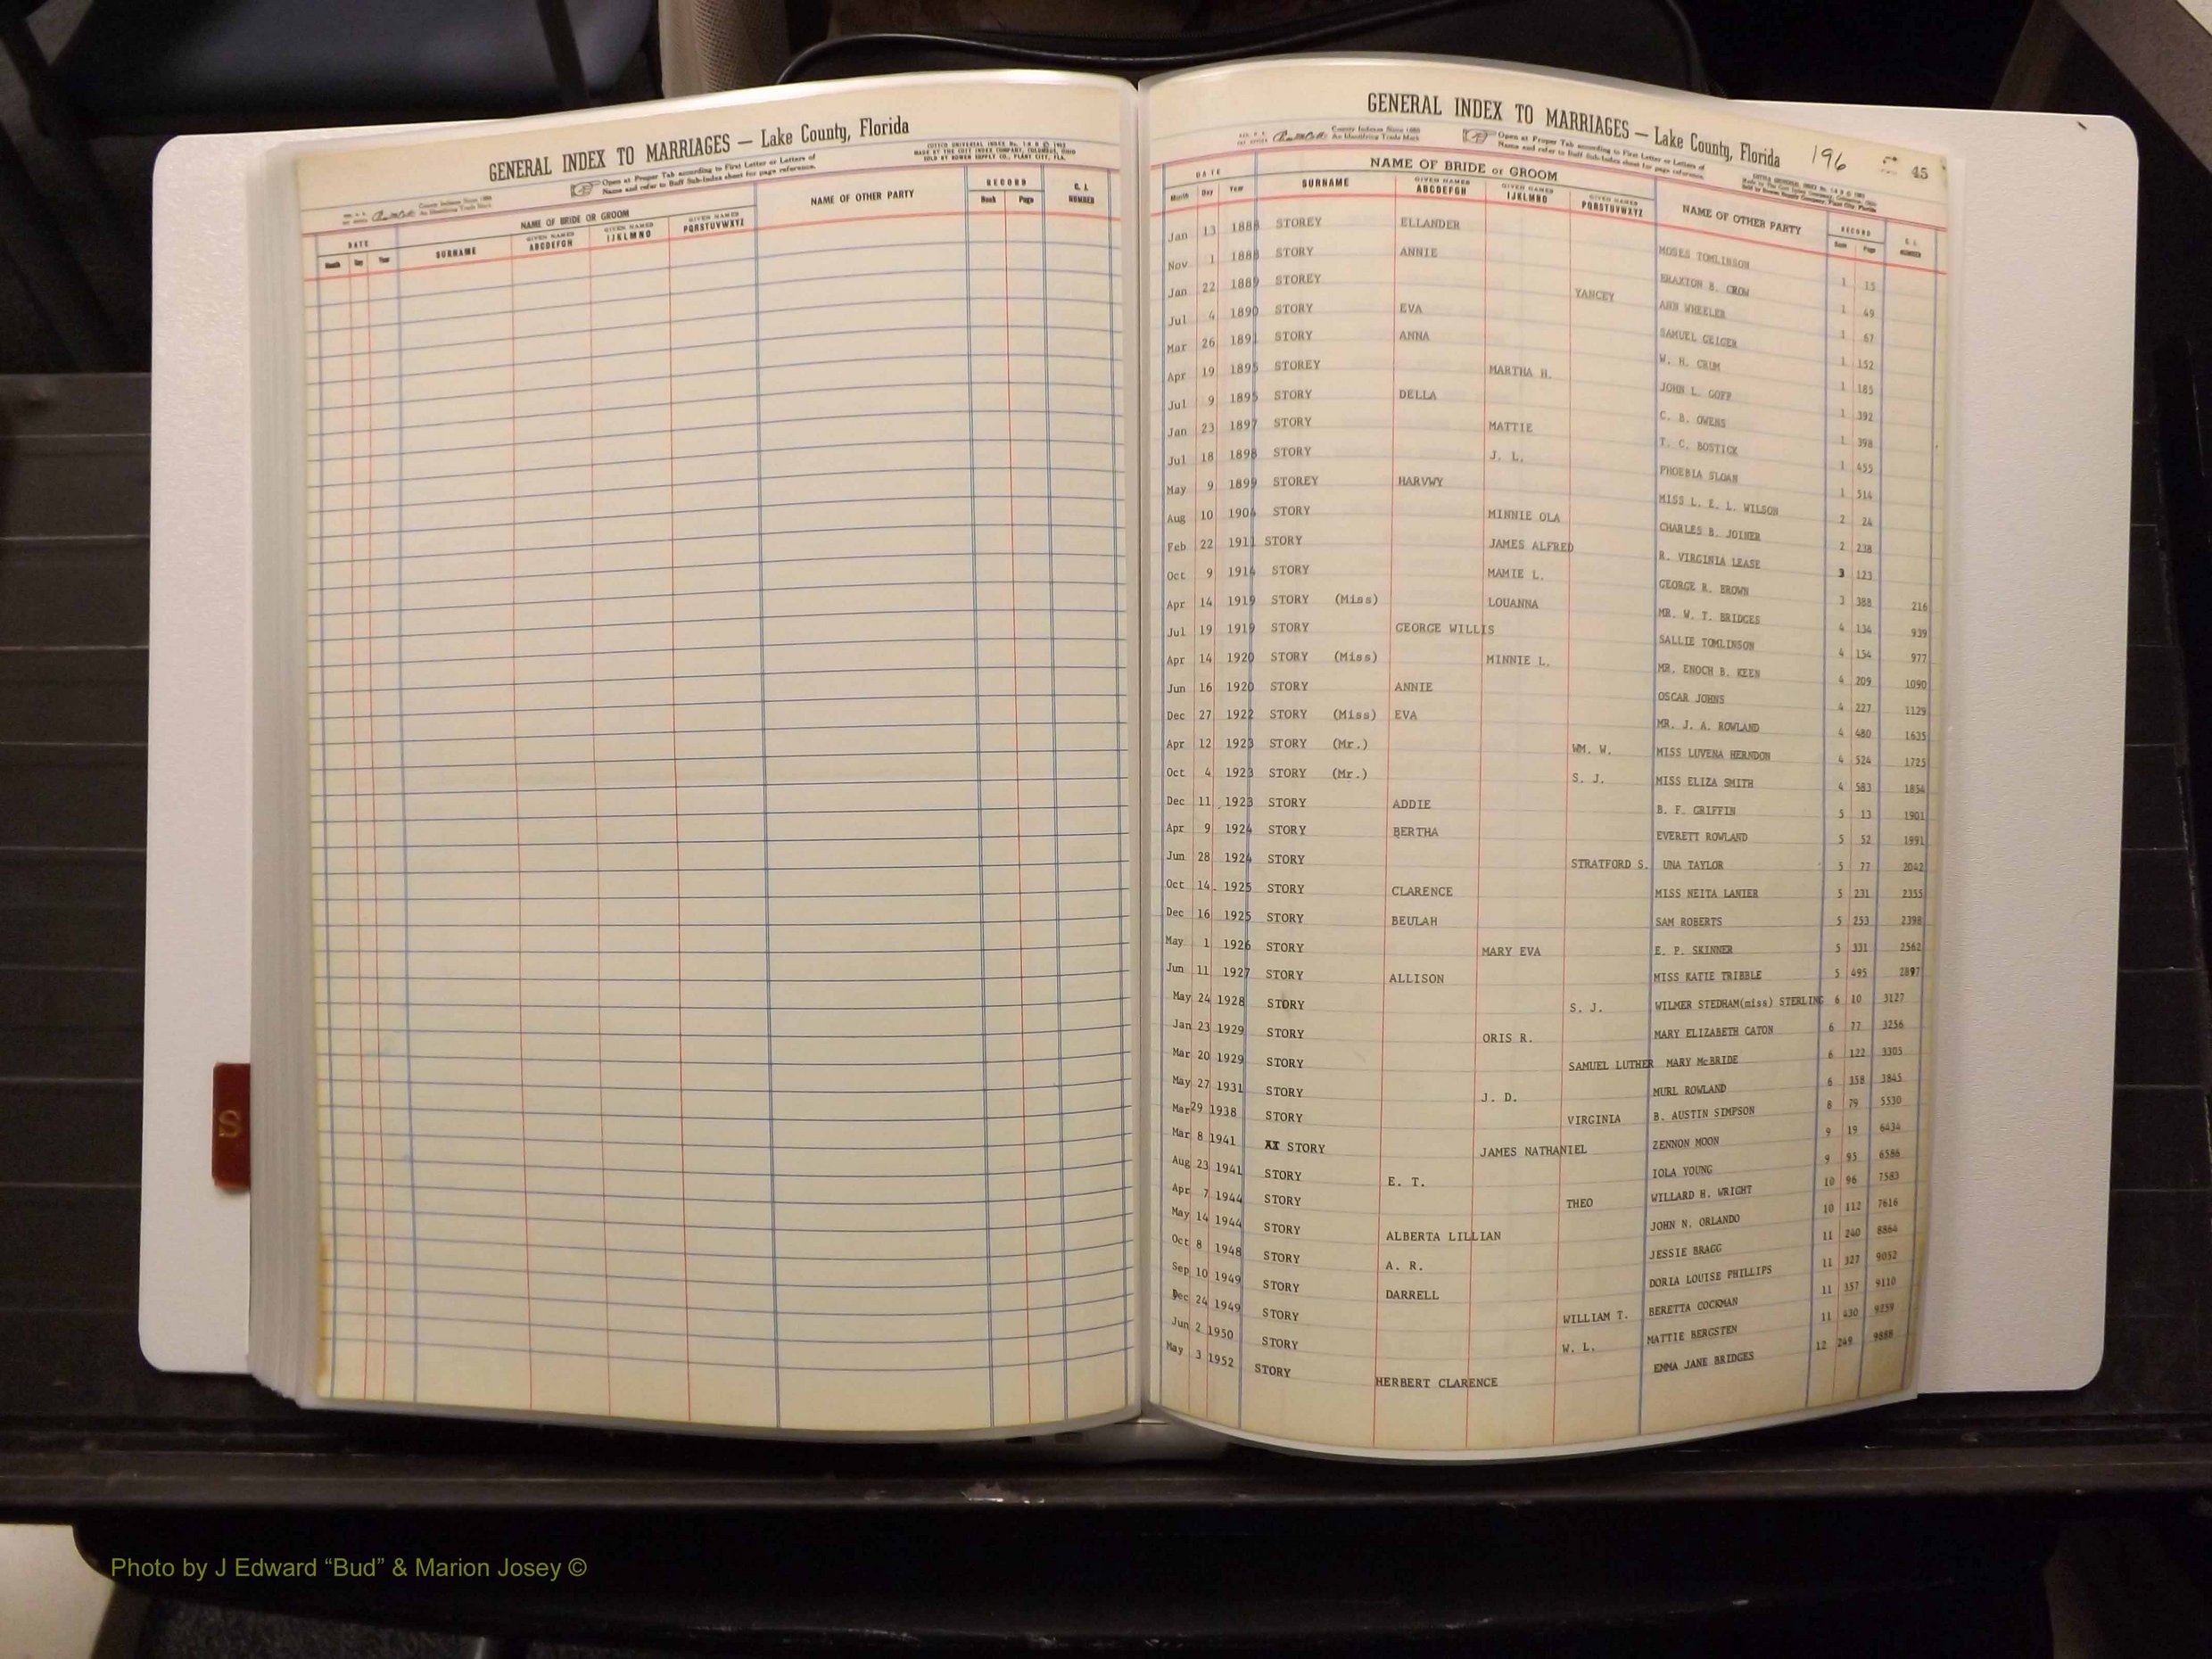 GENERAL INDEX TO MARRIAGES — Lake County, Florida
Open at Proper Tab according to First Letter or Letters of
Name and refer to Buff Sub-Index sheet for page reference.
County Indexes Since 1888
An Identifying Trade Mark
COTT INDEX COMPANY, COLUMBUS, OHIO
SOLD BY BOWEN SUPPLY CO., PLANT CITY, FLA.
DATE NAME OF BRIDE OR GROOM NAME OF OTHER PARTY RECORD
Month Day Year SURNAME GIVEN NAMES ABCDEFGH GIVEN NAMES IJKLMNO GIVEN NAMES PQRSTUVWXYZ Book Page NUMBER
S
GENERAL INDEX TO MARRIAGES — Lake County, Florida 196 45
County Indexes Since 1888
An Identifying Trade Mark
Open at Proper Tab according to First Letter or Letters of
Name and refer to Buff Sub-Index sheet for page reference.
DATE NAME OF BRIDE or GROOM NAME OF OTHER PARTY RECORD
Month Day Year SURNAME GIVEN NAMES ABCDEFGH GIVEN NAMES IJKLMNO GIVEN NAMES PQRSTUVWXYZ Book Page NUMBER
Jan 13 1888 STOREY ELLANDER MOSES TOMLINSON 1 15
Nov 1 1888 STORY ANNIE BRAXTON B. CROM 1 49
Jan 22 1889 STOREY YANCEY ANN WHEELER 1 67
Jul 4 1890 STORY EVA SAMUEL GEIGER 1 152
Mar 26 1891 STORY ANNA W. H. CRIM 1 185
Apr 19 1895 STOREY MARTHA H. JOHN L. GOFF 1 392
Jul 9 1895 STORY DELLA C. B. OWENS 1 398
Jan 23 1897 STORY MATTIE T. C. BOSTICK 1 455
Jul 18 1898 STORY J. L. PHOEBIA SLOAN 1 514
May 9 1899 STOREY HARVWY MISS L. E. L. WILSON 2 24
Aug 10 1904 STORY MINNIE OLA CHARLES B. JOINER 2 238
Feb 22 1911 STORY JAMES ALFRED R. VIRGINIA LEASE 3 123
Oct 9 1914 STORY MAMIE L. GEORGE R. BROWN 3 388 216
Apr 14 1919 STORY (Miss) LOUANNA MR. W. T. BRIDGES 4 134 939
Jul 19 1919 STORY GEORGE WILLIS SALLIE TOMLINSON 4 154 977
Apr 14 1920 STORY (Miss) MINNIE L. MR. ENOCH B. KEEN 4 209 1090
Jun 16 1920 STORY ANNIE OSCAR JOHNS 4 227 1129
Dec 27 1922 STORY (Miss) EVA MR. J. A. ROWLAND 4 480 1635
Apr 12 1923 STORY (Mr.) WM. W. MISS LUVENA HERNDON 4 524 1725
Oct 4 1923 STORY (Mr.) S. J. MISS ELIZA SMITH 4 583 1854
Dec 11 1923 STORY ADDIE B. F. GRIFFIN 5 13 1901
Apr 9 1924 STORY BERTHA EVERETT ROWLAND 5 52 1991
Jun 28 1924 STORY STRATFORD S. UNA TAYLOR 5 77 2042
Oct 14 1925 STORY CLARENCE MISS NEITA LANIER 5 231 2355
Dec 16 1925 STORY BEULAH SAM ROBERTS 5 253 2398
May 1 1926 STORY MARY EVA E. P. SKINNER 5 331 2562
Jun 11 1927 STORY ALLISON MISS KATIE TRIBBLE 5 495 2897
May 24 1928 STORY S. J. WILMER STEDHAM(miss) STERLING 6 10 3127
Jan 23 1929 STORY ORIS R. MARY ELIZABETH CATON 6 77 3256
Mar 20 1929 STORY SAMUEL LUTHER MARY McBRIDE 6 122 3305
May 27 1931 STORY J. D. MURL ROWLAND 6 358 3845
Mar 29 1938 STORY VIRGINIA B. AUSTIN SIMPSON 8 79 5530
Mar 8 1941 STORY JAMES NATHANIEL ZENNON MOON 9 19 6434
Aug 23 1941 STORY E. T. IOLA YOUNG 9 95 6586
Apr 7 1944 STORY THEO WILLARD H. WRIGHT 10 96 7583
May 14 1944 STORY ALBERTA LILLIAN JOHN N. ORLANDO 10 112 7616
Oct 8 1948 STORY A. R. JESSIE BRAGG 11 240 8864
Sep 10 1949 STORY DARRELL DORIA LOUISE PHILLIPS 11 327 9052
Dec 24 1949 STORY WILLIAM T. BERETTA COCKMAN 11 357 9110
Jun 2 1950 STORY W. L. MATTIE BERGSTEN 11 430 9259
May 3 1952 STORY HERBERT CLARENCE EMMA JANE BRIDGES 12 249 9888
Photo by J Edward “Bud” & Marion Josey ©